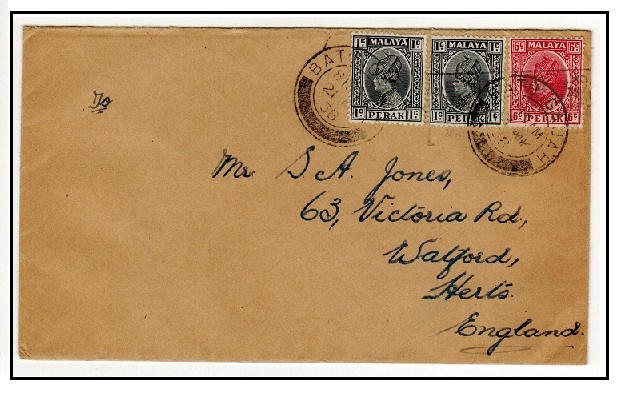 1c MALAYA 1c
1c PERAK 1c
1c MALAYA 1c
1c PERAK 1c
6c MALAYA 6c
6c PERAK 6c
To
Mr S A. Jones,
63, Victoria Rd,
Watford,
Herts.
England.